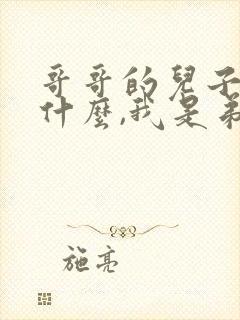 哥哥的兒子
什麼,我是弟
施亮